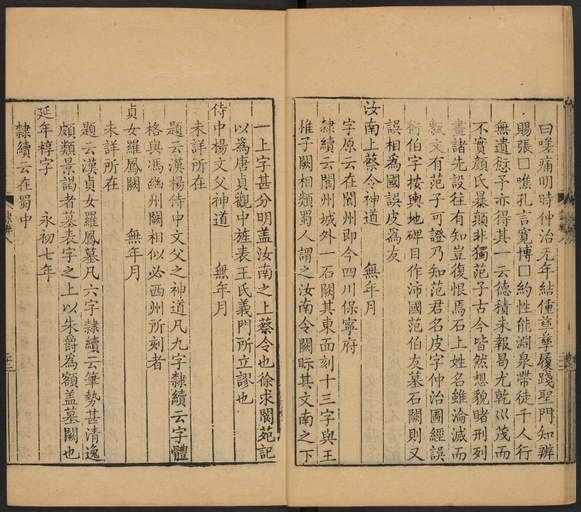 曰嗟痛明時仲治无年結僮㽵孳履踐聖門知辨
賜張□嚾孔言寬博□約性能淵泉帶徒千人行
無遺愆予亦得其一云德積未報曷尤乾巛茂而
不實顏氏暴顛非獨范子古今皆然想貌睹刑列
畫諸先設往有知豈復恨焉石上姓名雖淪滅而
甎文有范子可證乃知范君名皮字仲治圖經誤
衍伯字按輿地碑目作沛國范伯友墓石闕則又
誤相為國誤皮為友
汝南上蔡令神道　無年月
字原云在閬州即今四川保寧府
隸續云閬州城外一石闕其東面刻十三字與王
稚子闕相類蜀人謂之汝南令闕眎其文南之下
一上字甚分明盖汝南之上蔡令也徐求閬苑記
以為唐貞觀中旌表王氏義門所立謬也
侍中楊文父神道　無年月
未詳所在
題云漢楊侍中文父之神道凡九字隸續云字體
格與馮緄州闕相似必西州所刻者
貞女羅鳳闕　無年月
未詳所在
題云漢貞女羅鳳墓凡六字隸續云筆勢甚清逸
頗類景謁者墓表字之上以朱爵為額盖墓闕也
延年椁字　永初七年
隸續云在蜀中